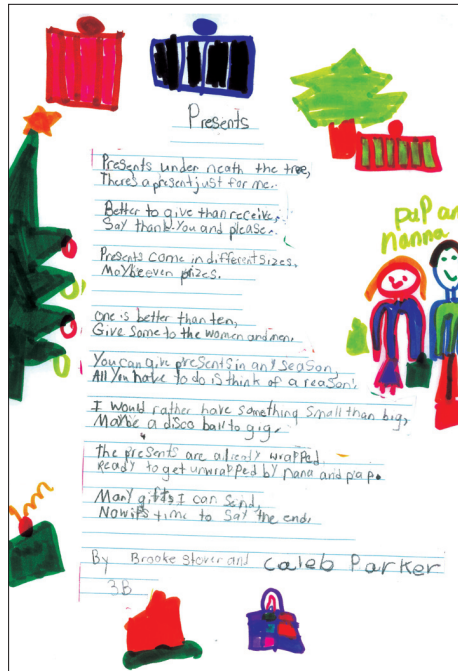 Presents
Presents under neath the tree,
There's a present just for me.
Better to give than receive,
Say thank you and please.
Presents come in different sizes.
Maybe even prizes.
one is better than ten,
Give some to the women and men.
You can give presents in any season,
All you have to do is think of a reason.
I would rather have something small than big,
Maybe a disco ball to gig.
The presents are already wrapped.
Ready to get unwrapped by nana and pap.
Many gifts I can send,
Now it's time to say the end.
pap an
nanna
By Brooke Stover and Caleb Parker
3B